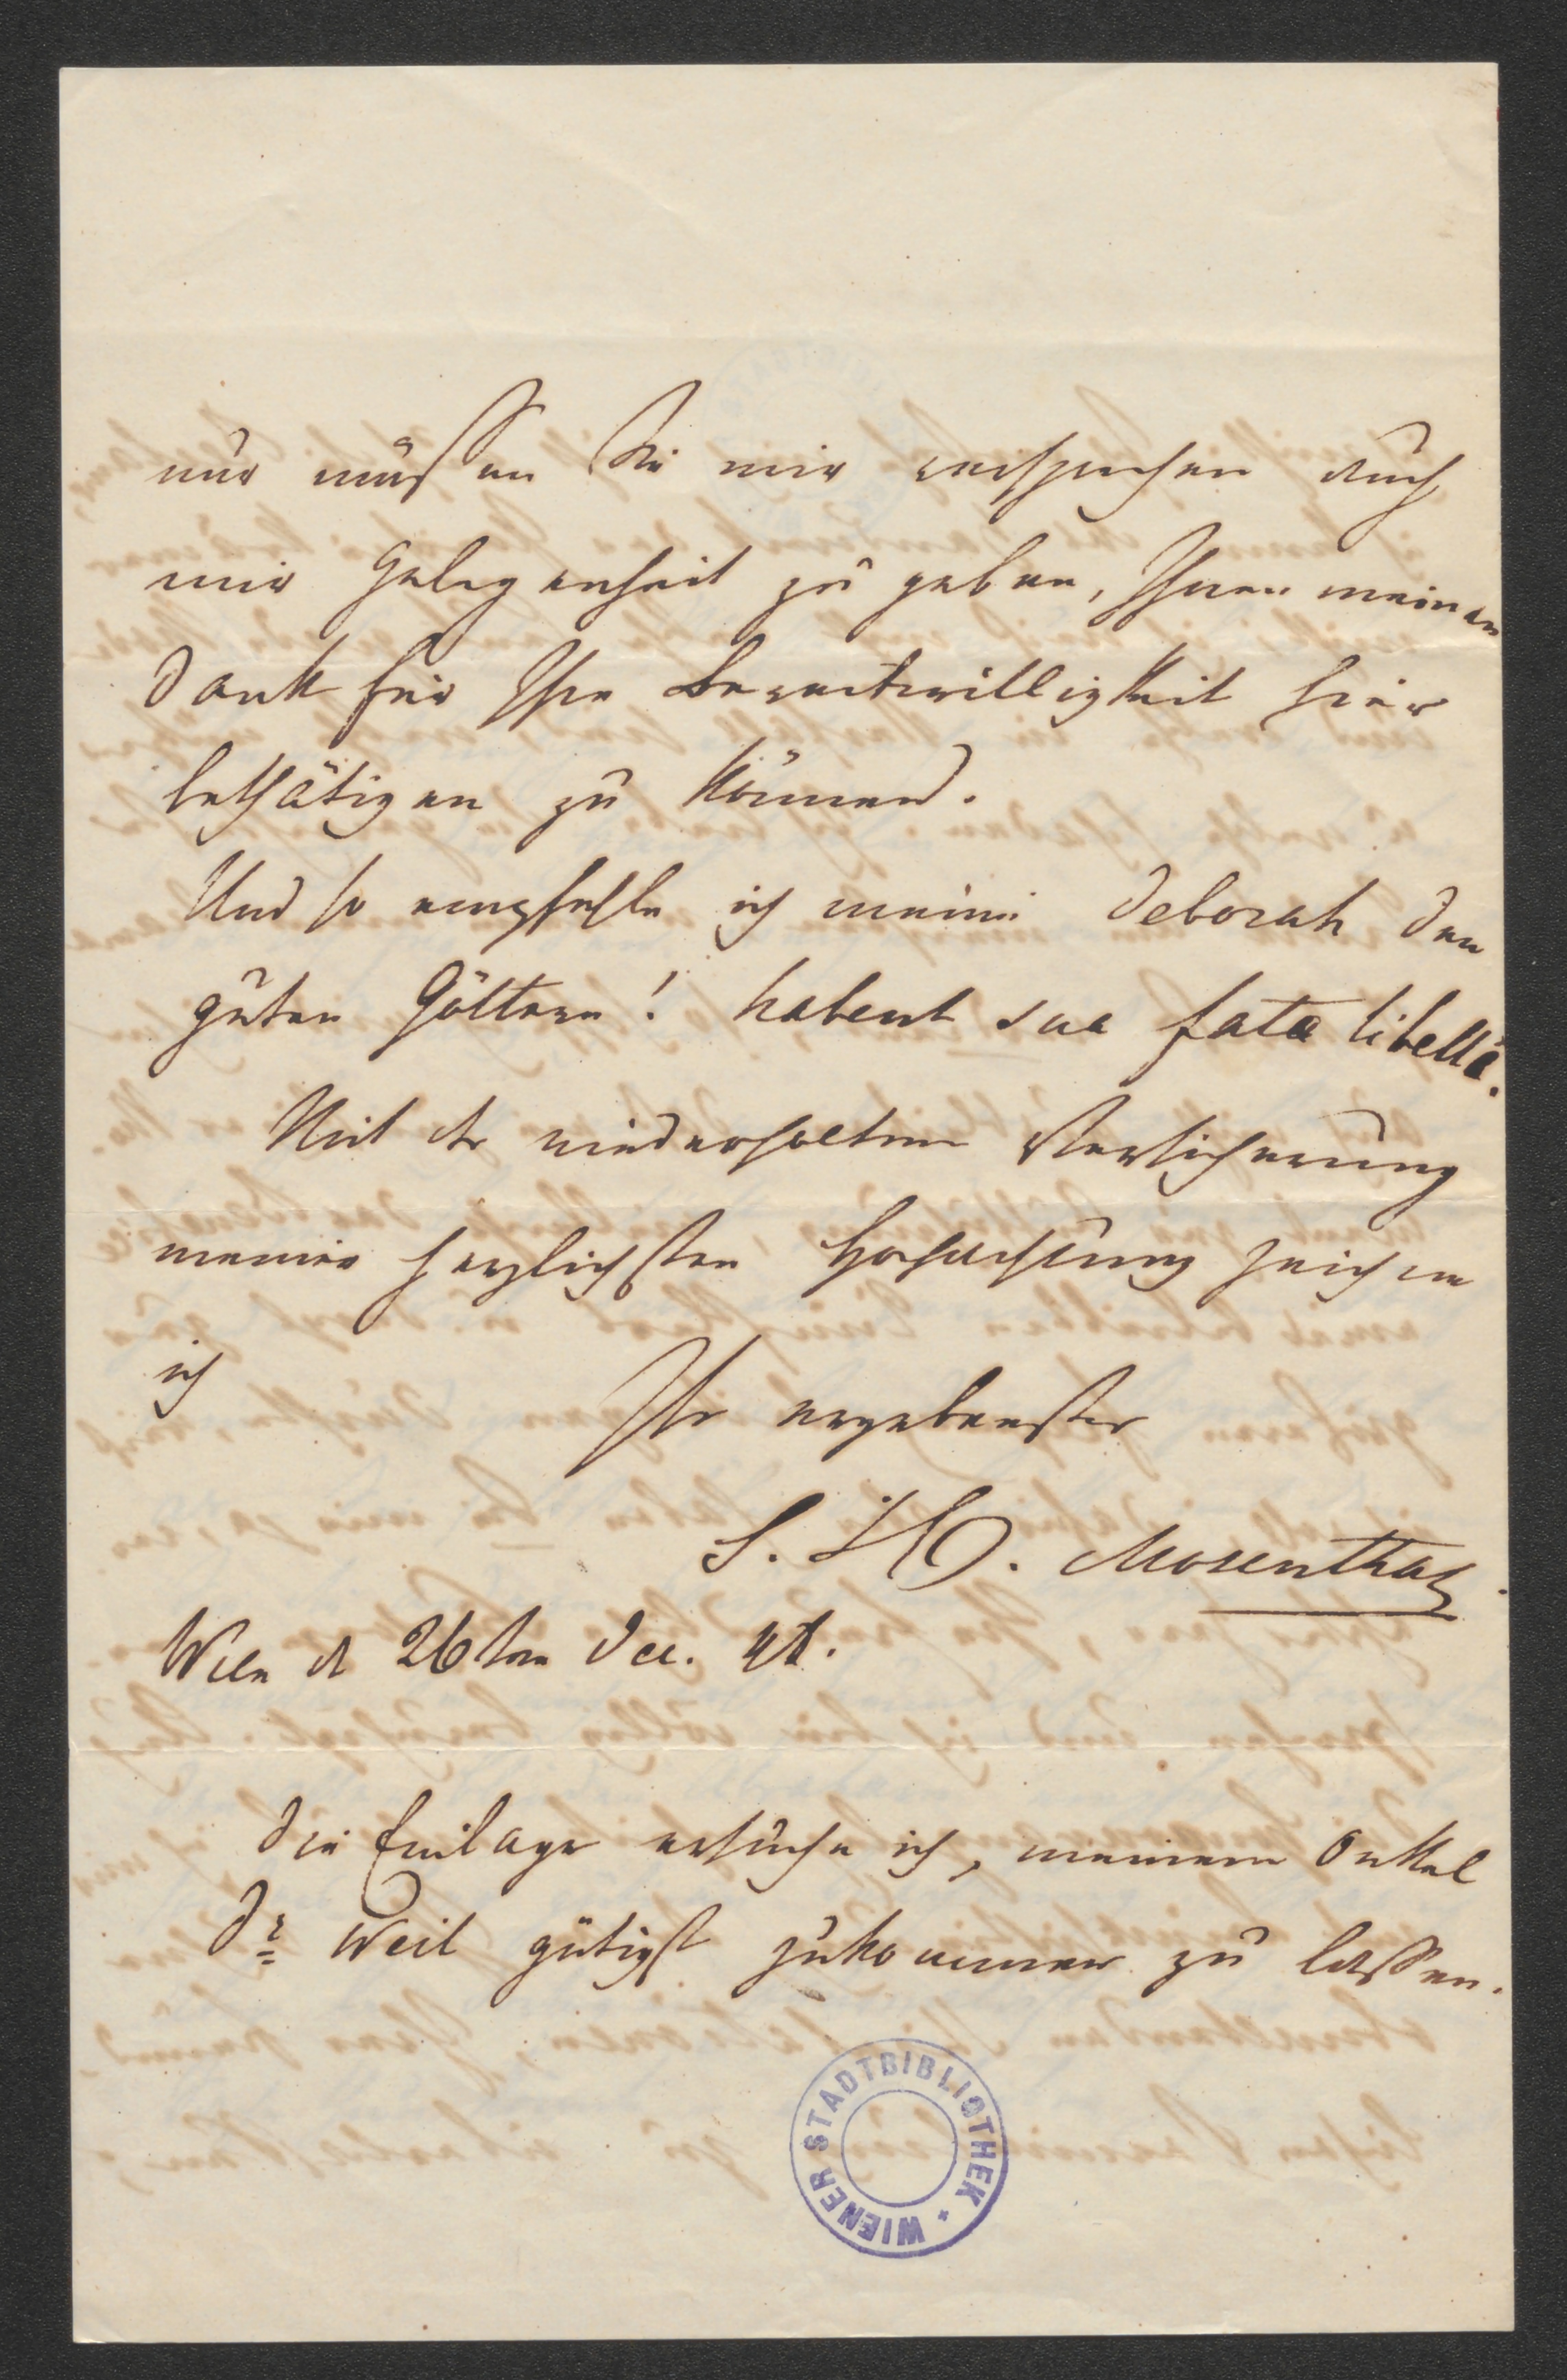 nur müssen Sie mir versprechen auch
mir Gelegenheit zu geben, Ihnen meinen
Dank für Ihre Bereitwilligkeit hier
bethätigen zu können.
Und so empfehle ich meine Deborah den
guten Göttern! habent sua fata libelli.
Mit der wiederholten Versicherung
meiner herzlichsten Hochachtung zeichne
ich
Ihr ergebenster
S. H. Mosenthal
Wien d 26ten Dec.
Die Einlage ersuche ich, meinem Onkel
Dr Weil gütigst zukommen zu lassen.
WIENER STADTBIBLIOTHEK